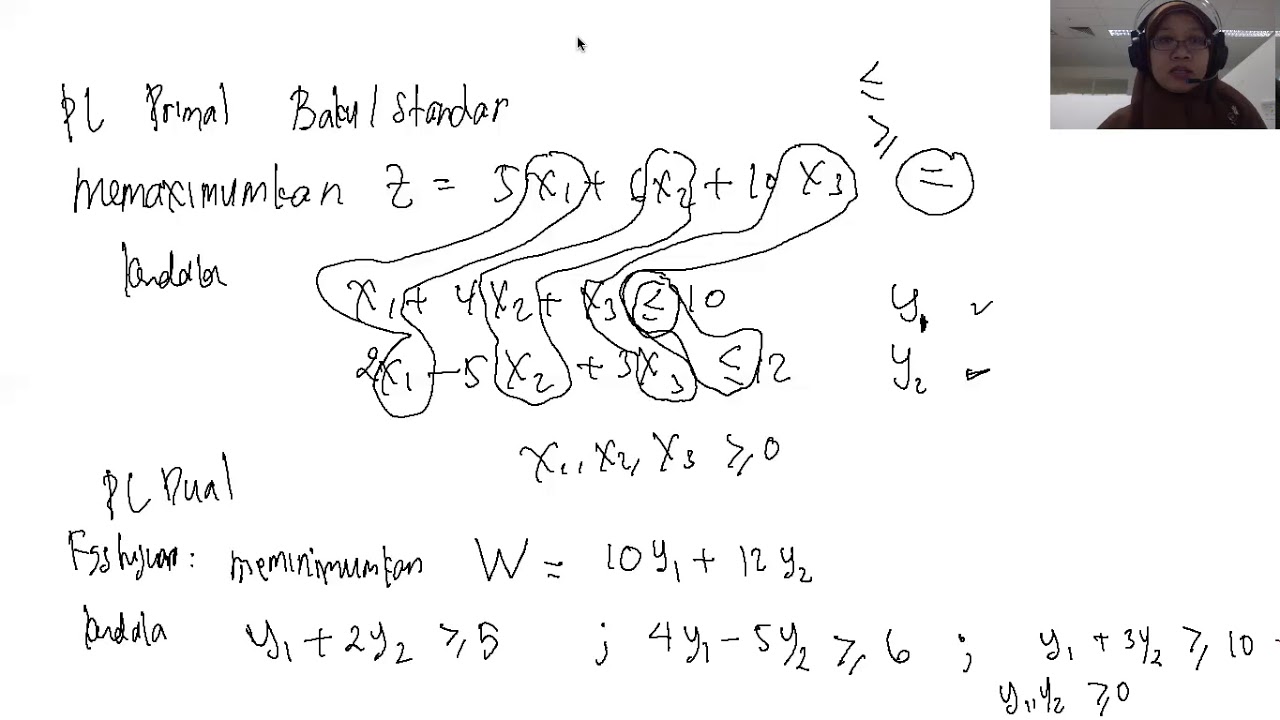 PL Primal Baku/Standar
≤
≥
=
memaximumkan Z = 5x₁ + 6x₂ + 10x₃
kendala
x₁ + 4x₂ + x₃ ≤ 10 y₁
2x₁ - 5x₂ + 3x₃ ≤ 12 y₂
x₁, x₂, x₃ ≥ 0
PL Dual
Fs tujuan : meminimumkan W = 10y₁ + 12y₂
kendala y₁ + 2y₂ ≥ 5 ; 4y₁ - 5y₂ ≥ 6 ; y₁ + 3y₂ ≥ 10
y₁, y₂ ≥ 0